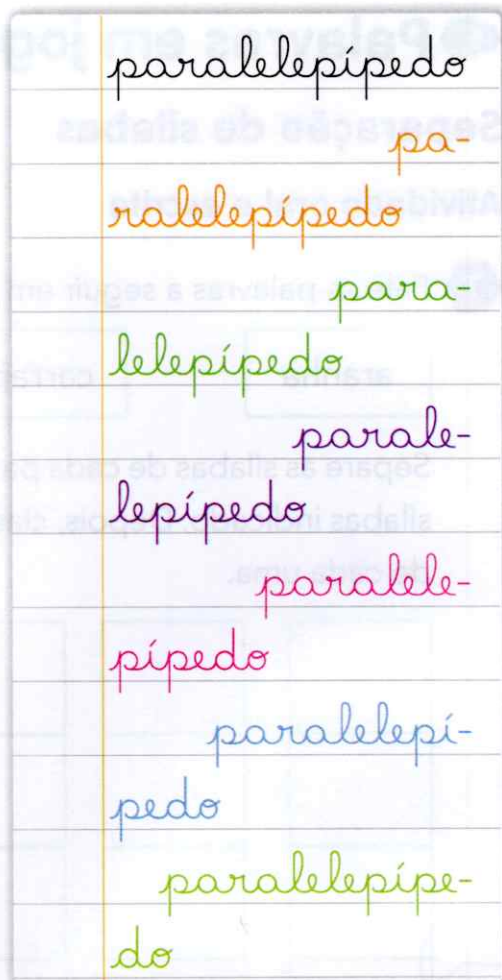 paralelepípedo
pa-
ralelepípedo
para-
lelepípedo
parale-
lepípedo
paralele-
pípedo
paralelepí-
pedo
paralelepípe-
do